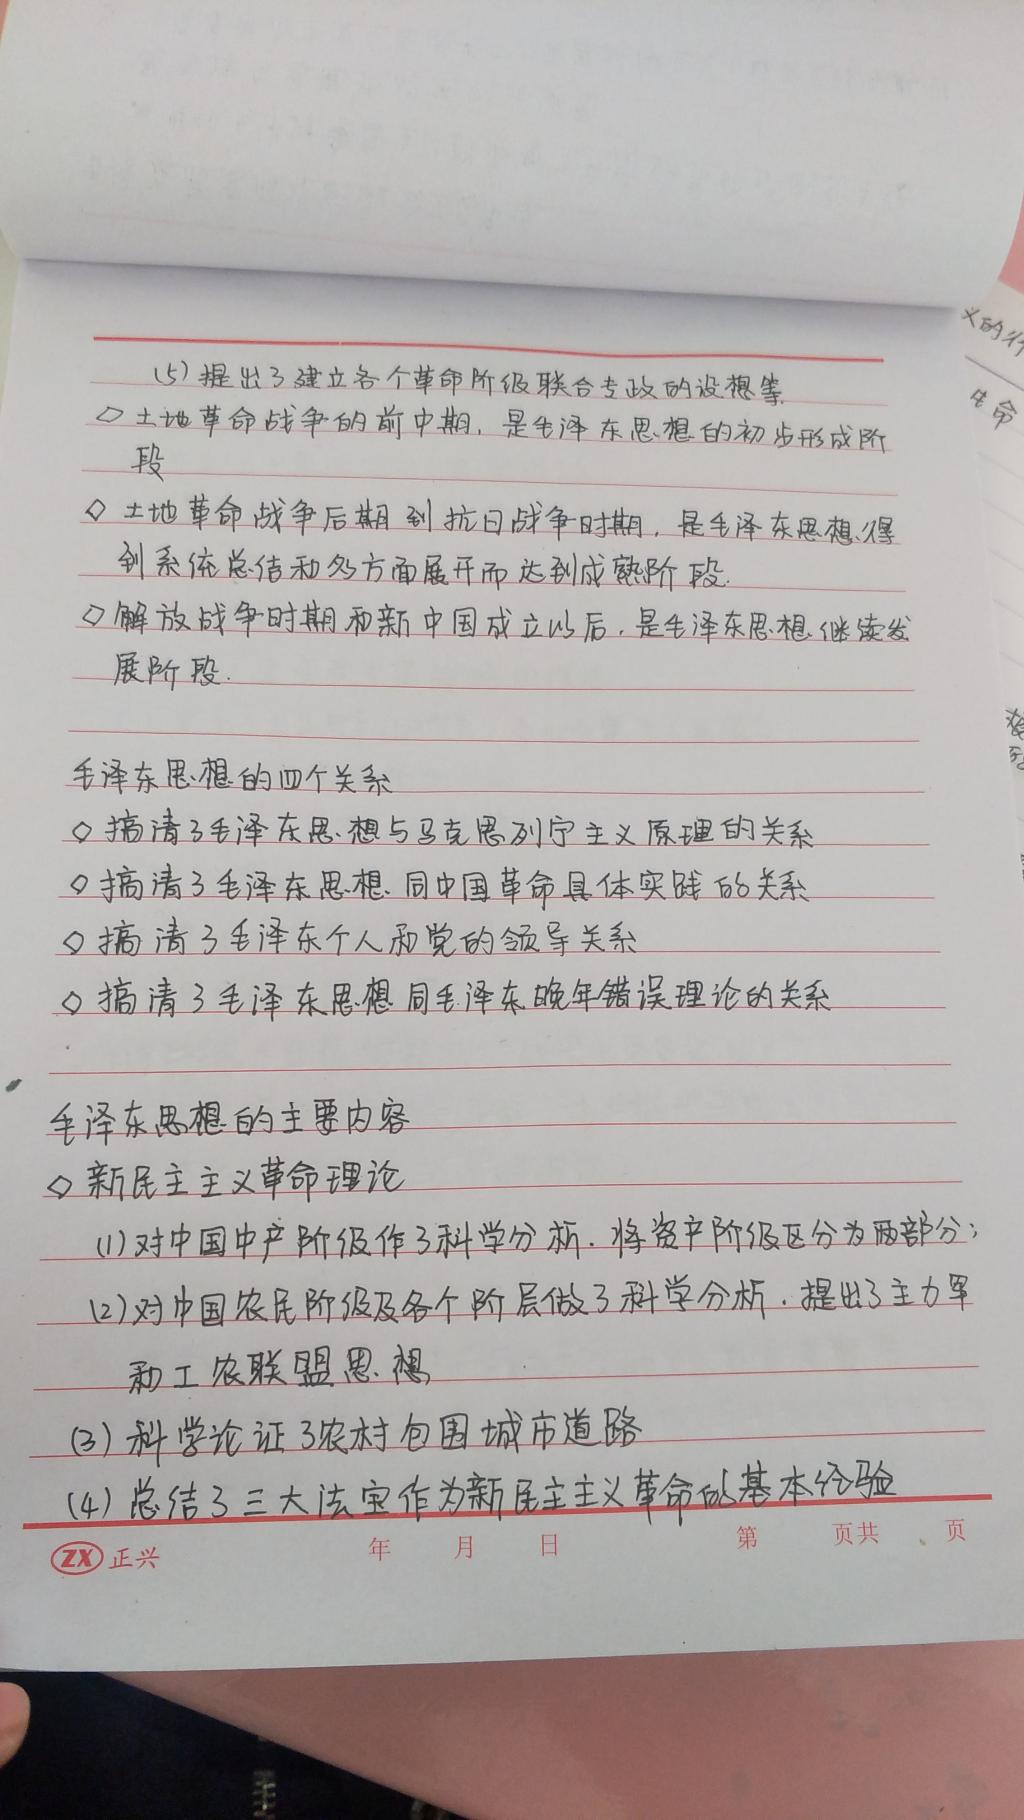 (5)提出了建立各个革命阶级联合专政的设想等
◇ 土地革命战争的前中期，是毛泽东思想的初步形成阶
段
◇ 土地革命战争后期到抗日战争时期，是毛泽东思想得
到系统总结和多方面展开而达到成熟阶段.
◇ 解放战争时期和新中国成立以后，是毛泽东思想继续发
展阶段.
毛泽东思想的四个关系
◇ 搞清了毛泽东思想与马克思列宁主义原理的关系
◇ 搞清了毛泽东思想同中国革命具体实践的关系
◇ 搞清了毛泽东个人和党的领导关系
◇ 搞清了毛泽东思想同毛泽东晚年错误理论的关系
毛泽东思想的主要内容
◇ 新民主主义革命理论
(1)对中国中产阶级作了科学分析.将资产阶级区分为两部分;
(2)对中国农民阶级及各个阶层做了科学分析.提出了主力军
和工农联盟思想
(3)科学论证了农村包围城市道路
(4)总结了三大法宝作为新民主主义革命的基本经验
ZX 正兴 年 月 日 第 页共 页
义的行
生命